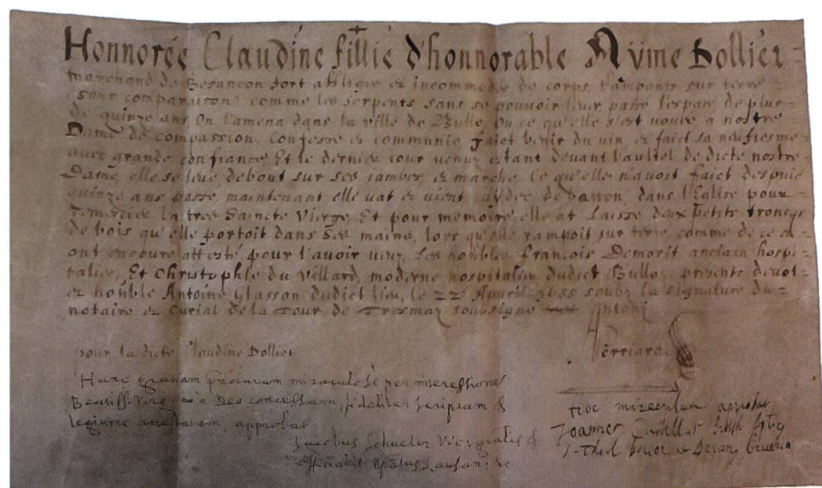 Honnorée Claudine fillie d'honnorable Aÿme Dollier
marchand de Besancon sort affligee et incommodee de corps, rampante sur terre
(sans comparaison) comme les serpents sans se pouvoir lever passe l'espace de plus
de quinze ans On l'amena dans la ville de Bulle, Ou ce qu'elle s'est vouée a nostre
Dame de compassion. Confesse et communie, faict benir du vin, et faict sa neufiesme
avec grande confiance, Et le dernier iour venuz estant devant l'aultel de dicte nostre
Dame, elle se leve, debout sur ses iambes, et marche. Ce qu'elle n'avoit faict despuis
quinze ans passe, maintenant elle vat et vient, aydee de baston, dans l'Eglise pour
remercier la tres Saincte Vierge. Et pour memoire elle at laisse deux petits troncqs
de bois qu'elle portoit dans ses mains, lors qu'elle rampoit sur terre, comme de ce
ont encoure attesté pour l'avoir veuz, les honbles francois Demorit anciain hospi-
talier, Et Christophle du Villard, moderne hospitalier dudict Bulloz presents
et honble Antoine Glasson dudict lieu, le 22 Apvril 1655 soubz la signature du
notaire et Curial de la Tour de Tresmaz soubsigné Antoni
pour la dicte Claudine Dollier
Hanc gratiam miraculose per intercessionem
Beatiss. Virginis a Deo concessam fideliter scriptam &
legitime attestatam, approbat
Jacobus Schueler Vic. gnalis &
Officialis Lausan
Hoc miraculum approbat
Joannes